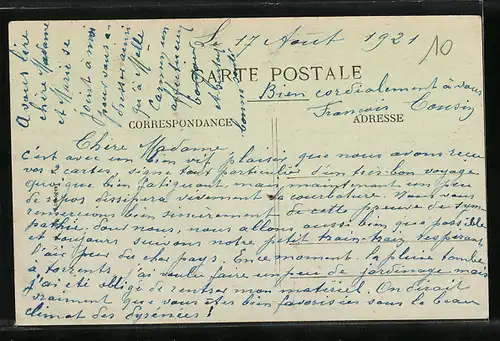 Le 17 Août 1921
10
CARTE POSTALE
Bien cordialement à vous
François Cousin
CORRESPONDANCE
ADRESSE
Chère Madame
C'est avec un bien vif plaisir que nous avons reçu
vos 2 cartes, signe tout particulier d'un très bon voyage
quoique bien fatiguant, mais maintenant un peu
de repos dissipera vivement la courbature. Nous vous
remercions bien sincèrement de cette preuve de sym-
pathie. Pour nous, nous allons aussi bien que possible
et toujours suivons notre petit train-train respirant
l'air pur du cher pays. En ce moment la pluie tombe
à torrents, j'ai voulu faire un peu de jardinage mais
j'ai été obligé de rentrer mon matériel. On dirait
vraiment que vous êtes bien favorisées sous le beau
climat des Pyrénées!
A vous lire
chère Madame
et Marie se
joint à moi
pour vous a-
dresser ainsi
qu'à Melle
affectueux
bonne santé